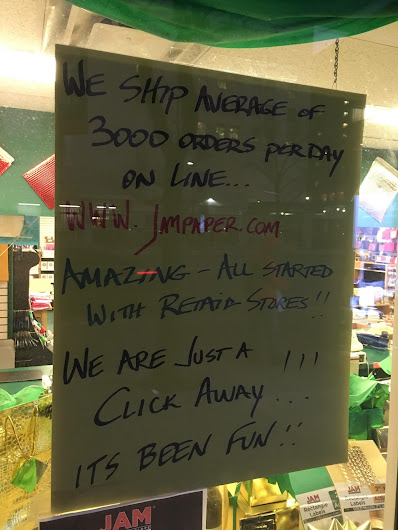 WE SHIP AVERAGE OF
3000 ORDERS PER DAY
ON LINE...
WWW.JMPAPER.COM
AMAZING - ALL STARTED
WITH RETAIL STORES!!
WE ARE JUST A !!!
CLICK AWAY...
ITS BEEN FUN!!
JAM
JAM
Rectangle
Labels
JAM
Rectangle
Labels